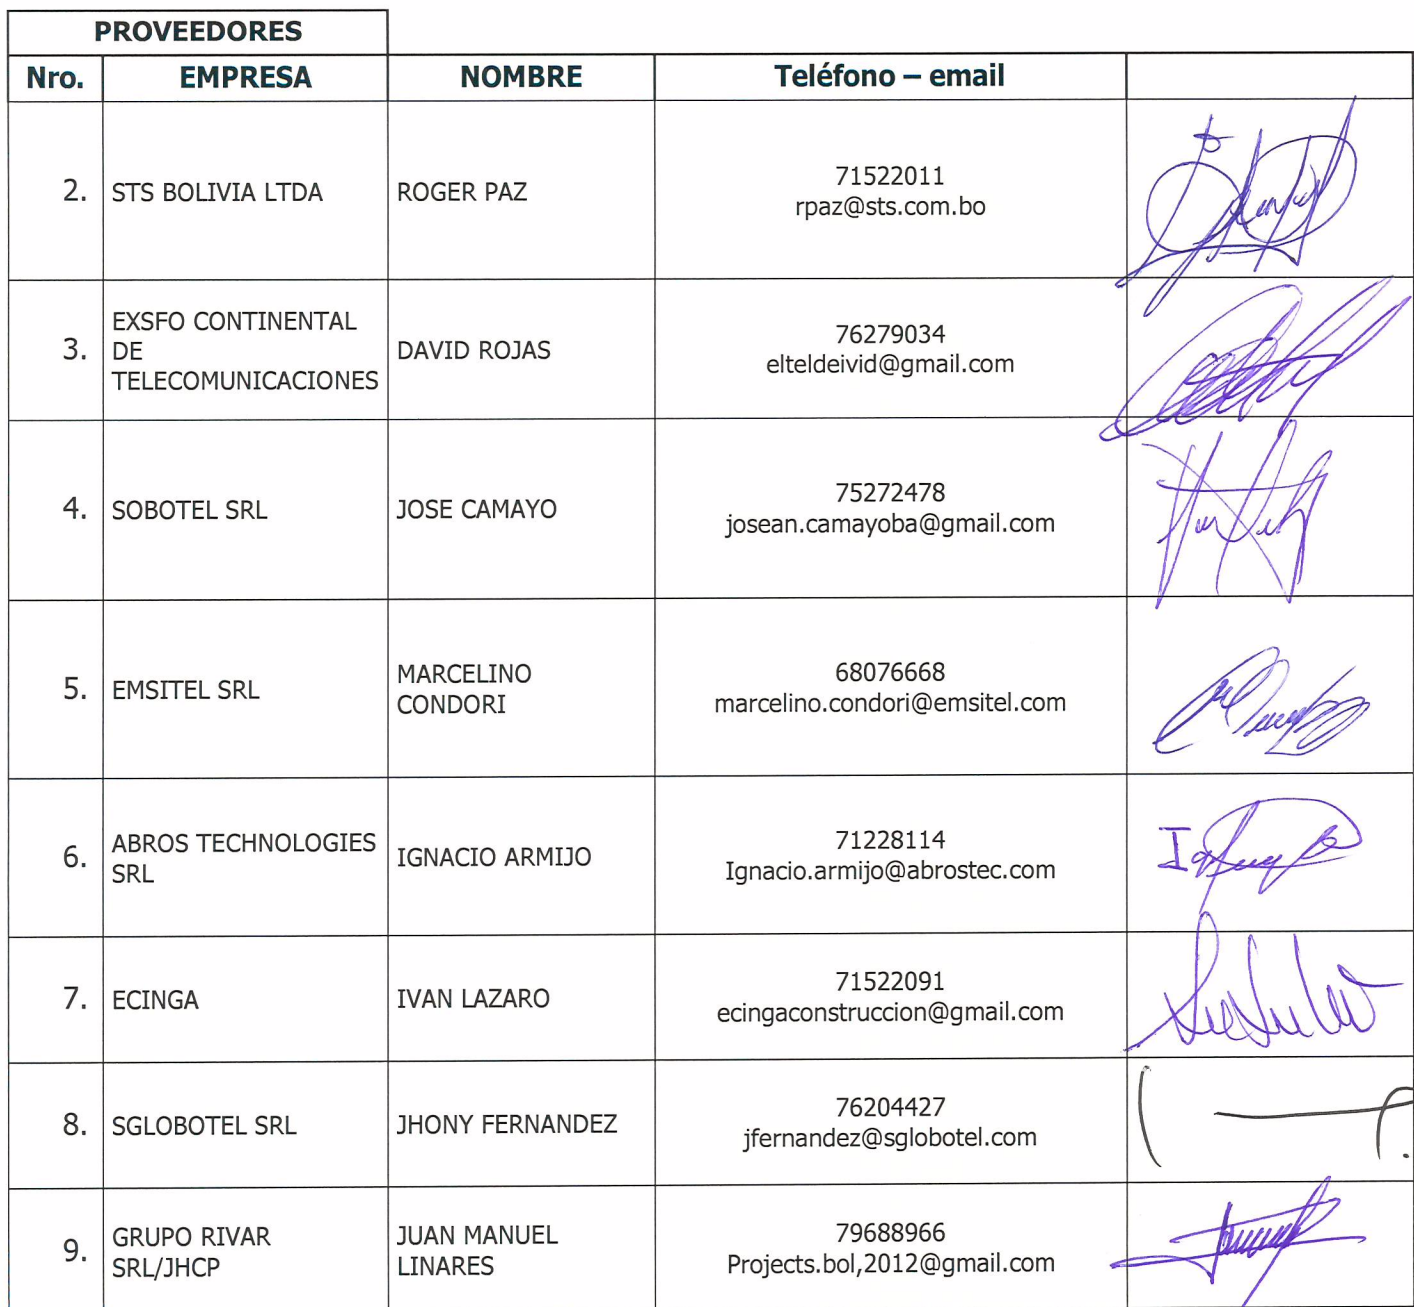 PROVEEDORES
Nro. EMPRESA NOMBRE Teléfono – email
2. STS BOLIVIA LTDA ROGER PAZ 71522011
rpaz@sts.com.bo
EXSFO CONTINENTAL
3. DE DAVID ROJAS 76279034
TELECOMUNICACIONES elteldeivid@gmail.com
4. SOBOTEL SRL JOSE CAMAYO 75272478
josean.camayoba@gmail.com
5. EMSITEL SRL MARCELINO 68076668
CONDORI marcelino.condori@emsitel.com
6. ABROS TECHNOLOGIES IGNACIO ARMIJO 71228114
SRL Ignacio.armijo@abrostec.com
7. ECINGA IVAN LAZARO 71522091
ecingaconstruccion@gmail.com
8. SGLOBOTEL SRL JHONY FERNANDEZ 76204427
jfernandez@sglobotel.com
9. GRUPO RIVAR JUAN MANUEL 79688966
SRL/JHCP LINARES Projects.bol,2012@gmail.com